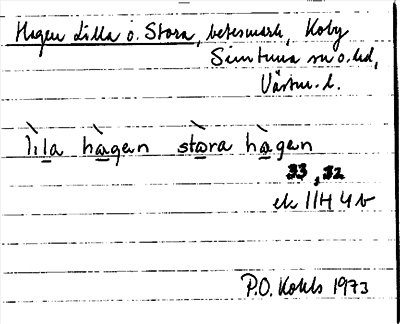 Hagen Lilla o. Stora, betesmark, Koby
Simtuna sn o. hd,
Västm. l.
lìla hàgen stòra hàgen
33, 32
ek 11H 4b
P.O. Kohls 1973